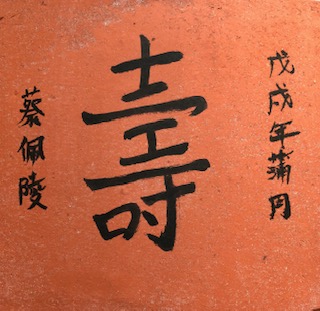 戊戌年蒲月
壽
蔡佩陵